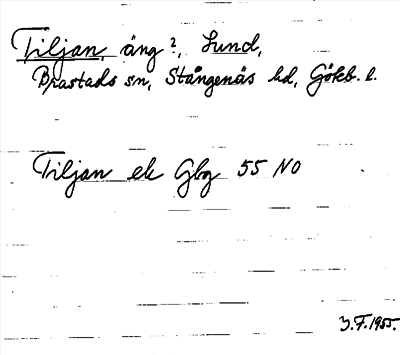 Tiljan, äng?, Lund,
Brastads sn, Stångenäs hd, Göteb. l.
Tiljan ek Gbg 55 NO
Y.F. 1955.